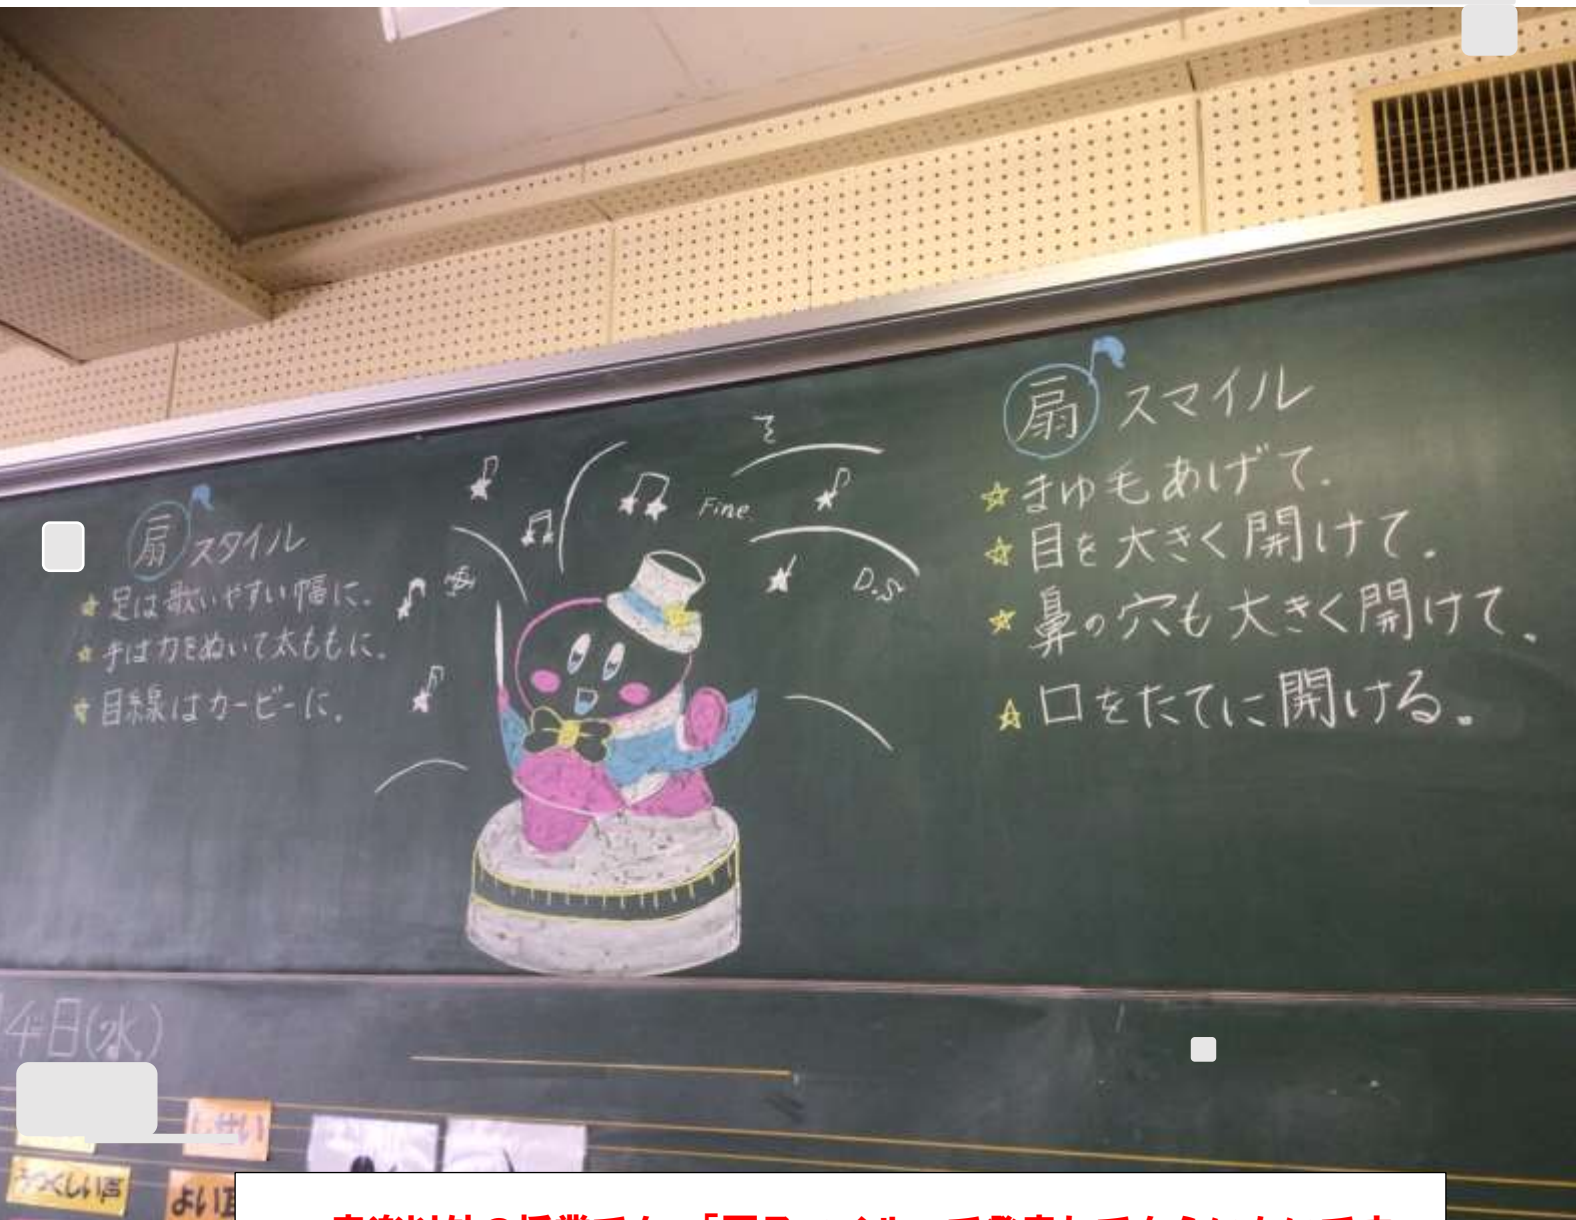 扇スタイル
足は歌いやすい幅に。
手は力をぬいて太ももに。
目線はカービーに。
Fine
D.S.
扇スマイル
まゆ毛あげて.
目を大きく開けて.
鼻の穴も大きく開けて.
口をたてに開ける.
4日(水)
しせい
よい